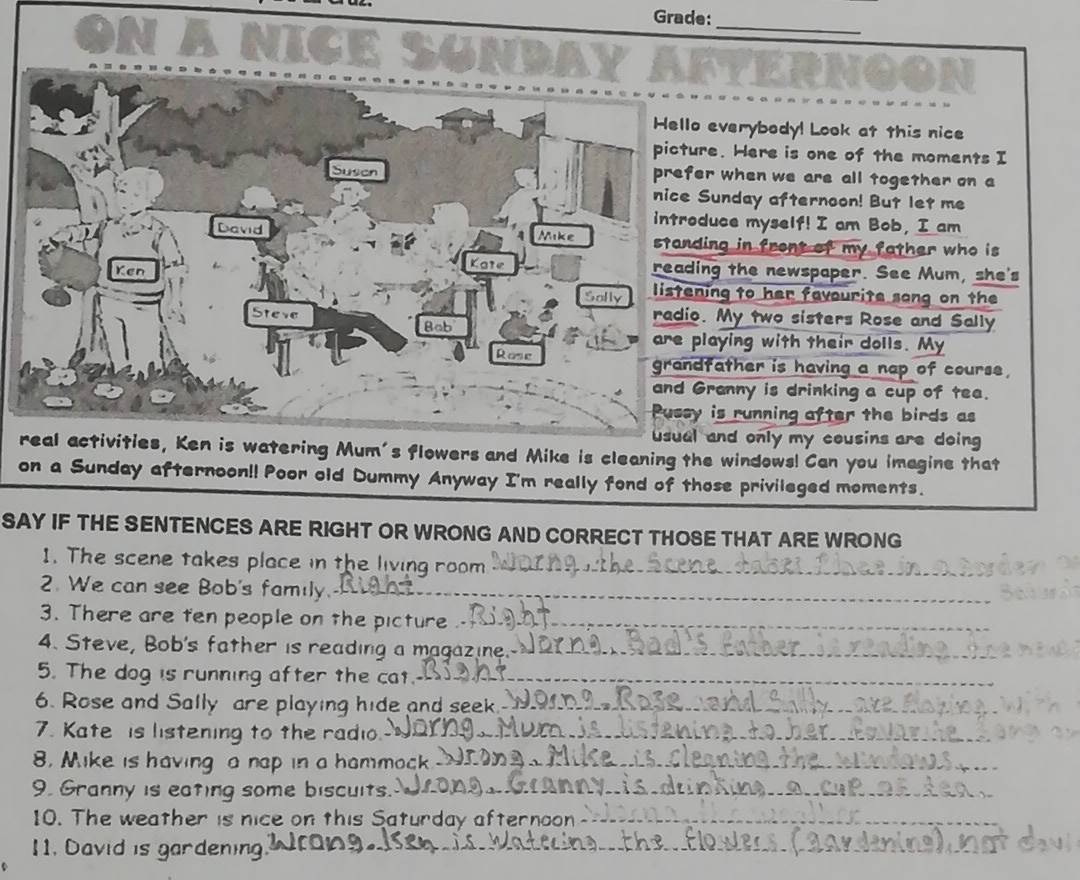 Grade:
ON A NICE SUNDAY AFTERNOON
Susan
David
Mike
Ken
Kate
Sally
Steve
Bob
Rose
Hello everybody! Look at this nice
picture. Here is one of the moments I
prefer when we are all together on a
nice Sunday afternoon! But let me
introduce myself! I am Bob, I am
standing in front of my father who is
reading the newspaper. See Mum, she's
listening to her favourite song on the
radio. My two sisters Rose and Sally
are playing with their dolls. My
grandfather is having a nap of course,
and Granny is drinking a cup of tea.
Pussy is running after the birds as
usual and only my cousins are doing
real activities, Ken is watering Mum's flowers and Mike is cleaning the windows! Can you imagine that
on a Sunday afternoon!! Poor old Dummy Anyway I'm really fond of those privileged moments.
SAY IF THE SENTENCES ARE RIGHT OR WRONG AND CORRECT THOSE THAT ARE WRONG
1. The scene takes place in the living room Worng, the Scene takes Place in a
2. We can see Bob's family. Right
3. There are ten people on the picture Right
4. Steve, Bob's father is reading a magazine. Worng, Bad's father is reading the
5. The dog is running after the cat. Right
6. Rose and Sally are playing hide and seek. Worng, Rose and Sally are Playing with
7. Kate is listening to the radio. Worng, Mum is listening to her favorite song
8. Mike is having a nap in a hammock Wrong, Mike is cleaning the windows,
9. Granny is eating some biscuits. Wrong, Granny is drinking a cup of tea,
10. The weather is nice on this Saturday afternoon Worng, the weather
11. David is gardening. Wrong. Ken is watering the flowers (gardening), not